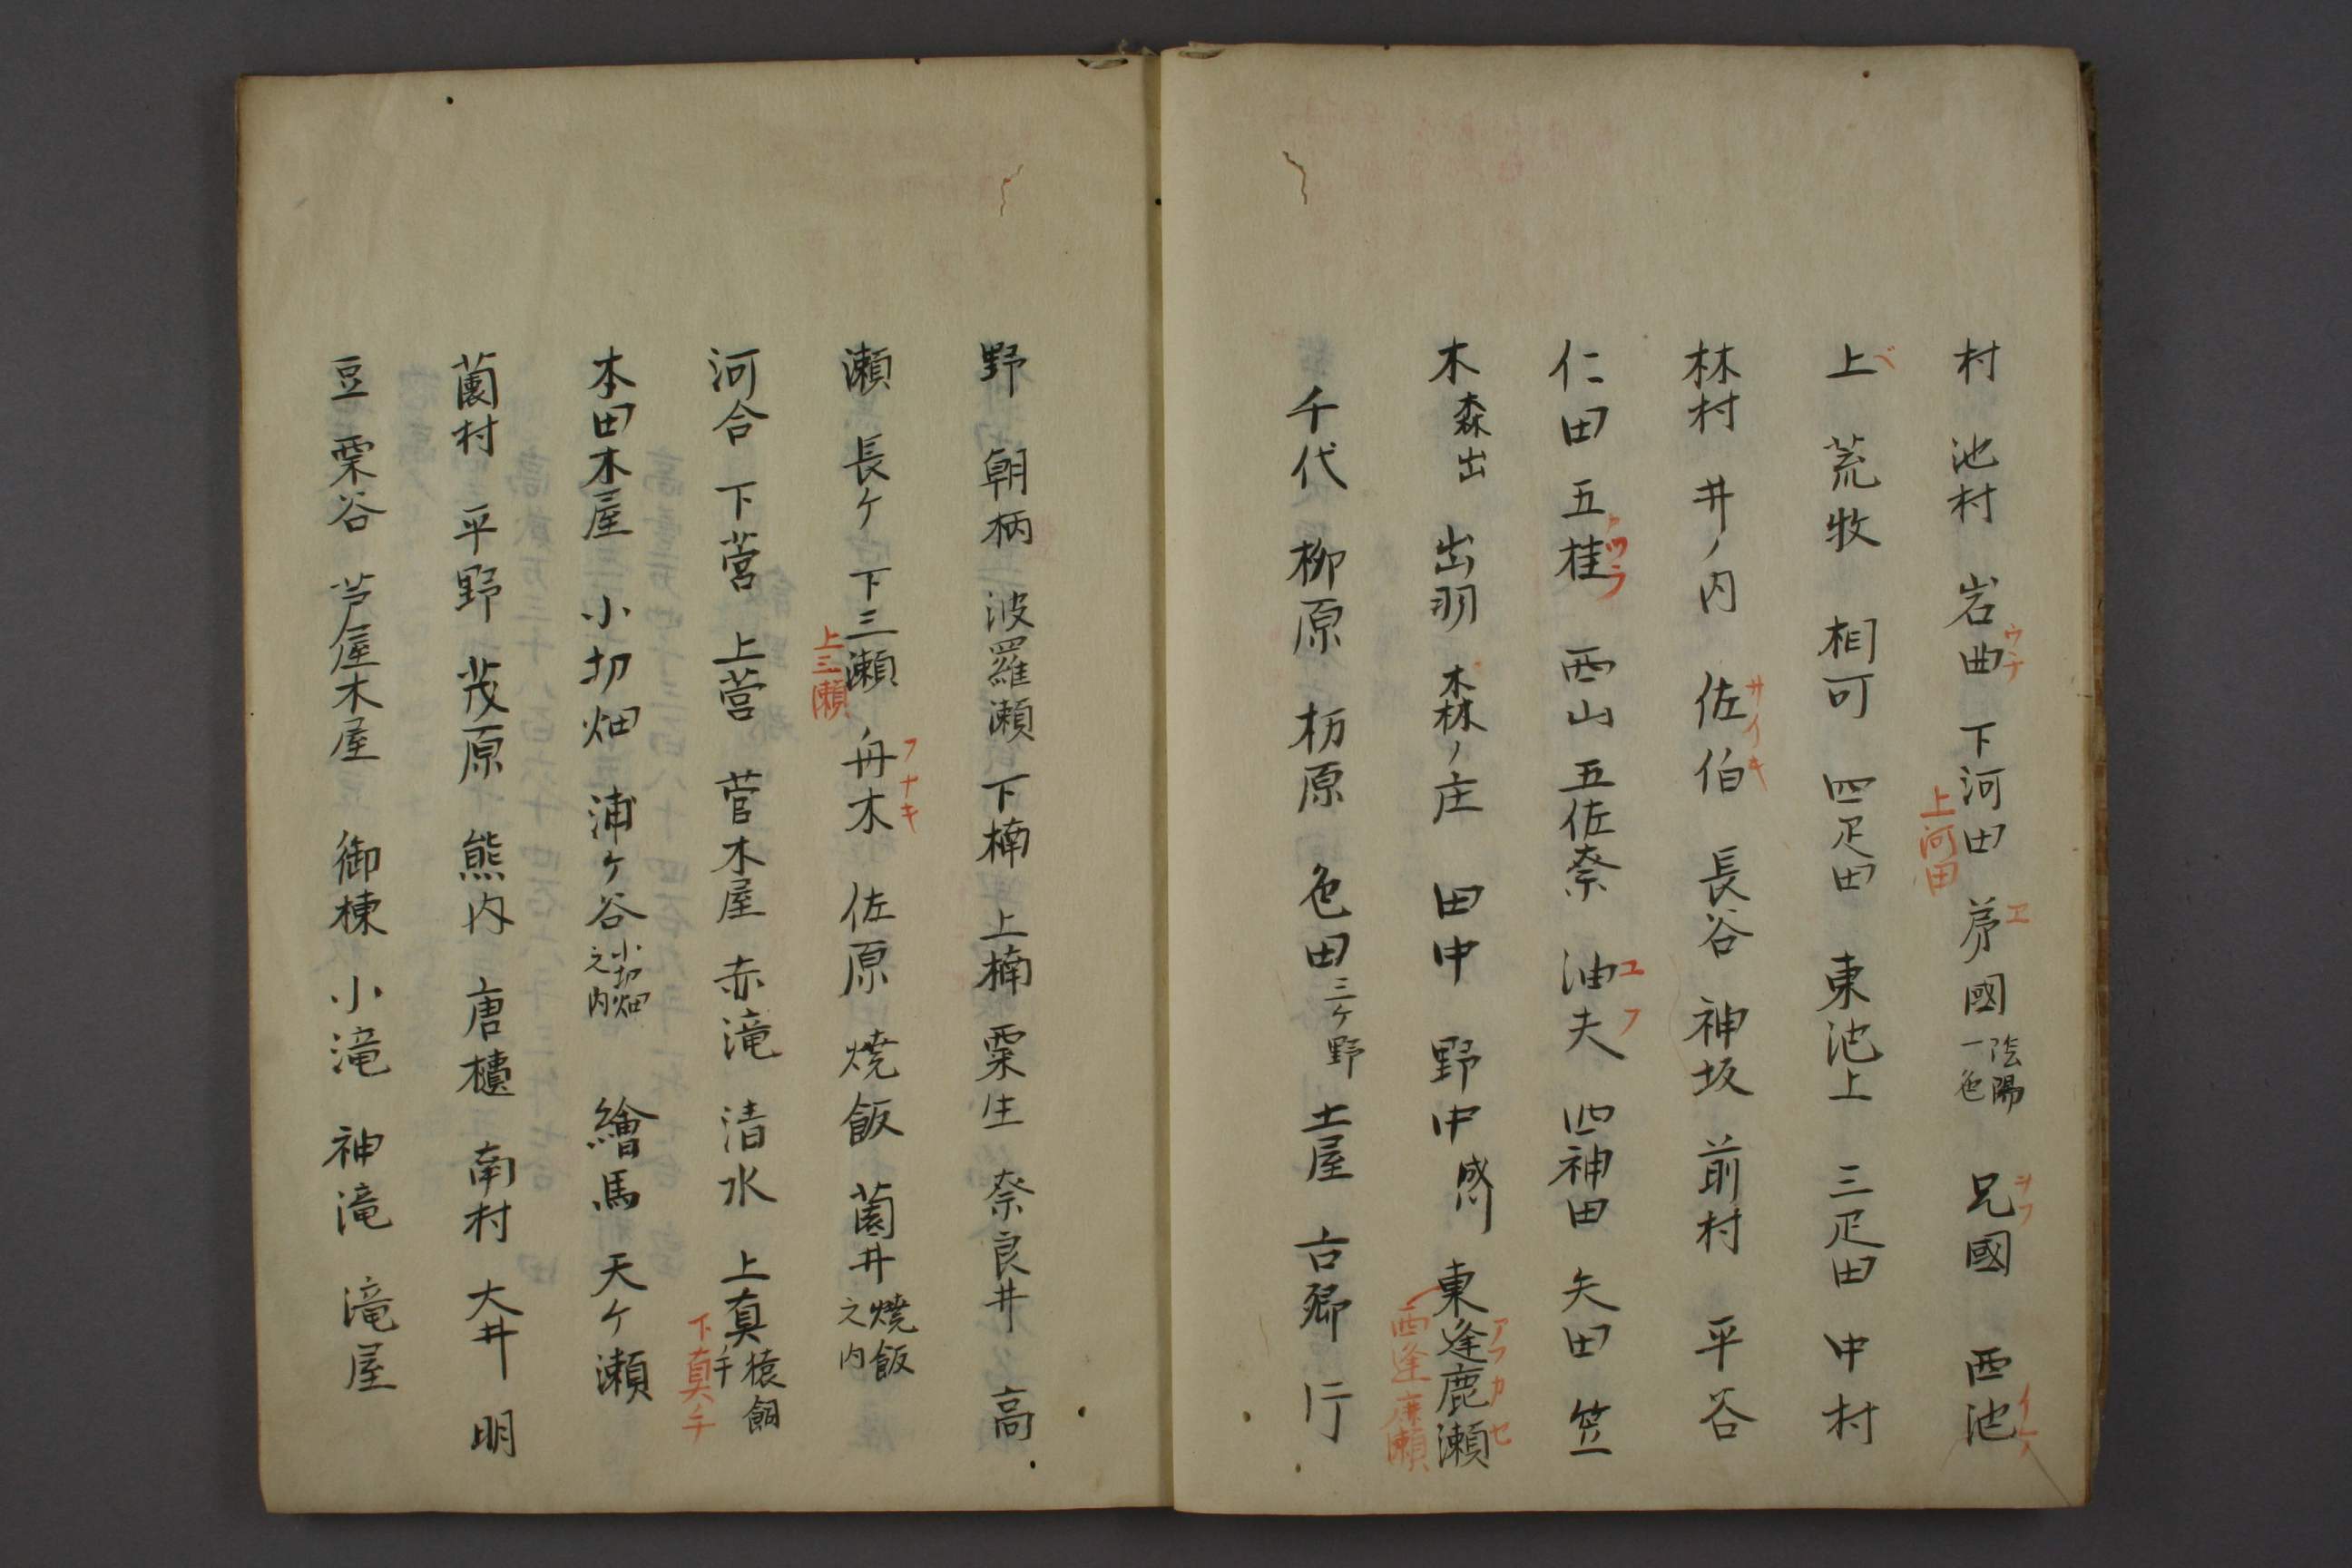 村 池村 岩曲 下河田 苐國 陰陽一色 兄國 西池
ウチ
上河田
エ
イケノ
上 荒牧 相可 四疋田 東池上 三疋田 中村
ベ
林村 井ノ内 佐伯 長谷 神坂 前村 平谷
サイキ
仁田 五桂 西山 五佐奈 油夫 四神田 矢田 笠
カツラ
ユフ
木 森出 出羽 森ノ庄 田中 野中 東逢鹿瀬
アフカセ
西逢鹿瀬
千代 柳原 栃原 色田 三ケ野 土屋 古郷 行
野 朝柄 波羅瀬 下楠 上楠 粟生 奈良井 高
瀬 長ケ 下三瀬 舟木 佐原 焼飯 薗井 焼飯之内
上三瀬
フナキ
河合 下菅 上菅 菅木屋 赤滝 清水 上真手 猿飼
下真手
本田木屋 小切畑 浦ケ谷 小切畑之内 繪馬 天ケ瀬
薗村 平野 茂原 熊内 唐櫃 南村 大井 明
豆 栗谷 芦屋木屋 御棟 小滝 神滝 滝屋